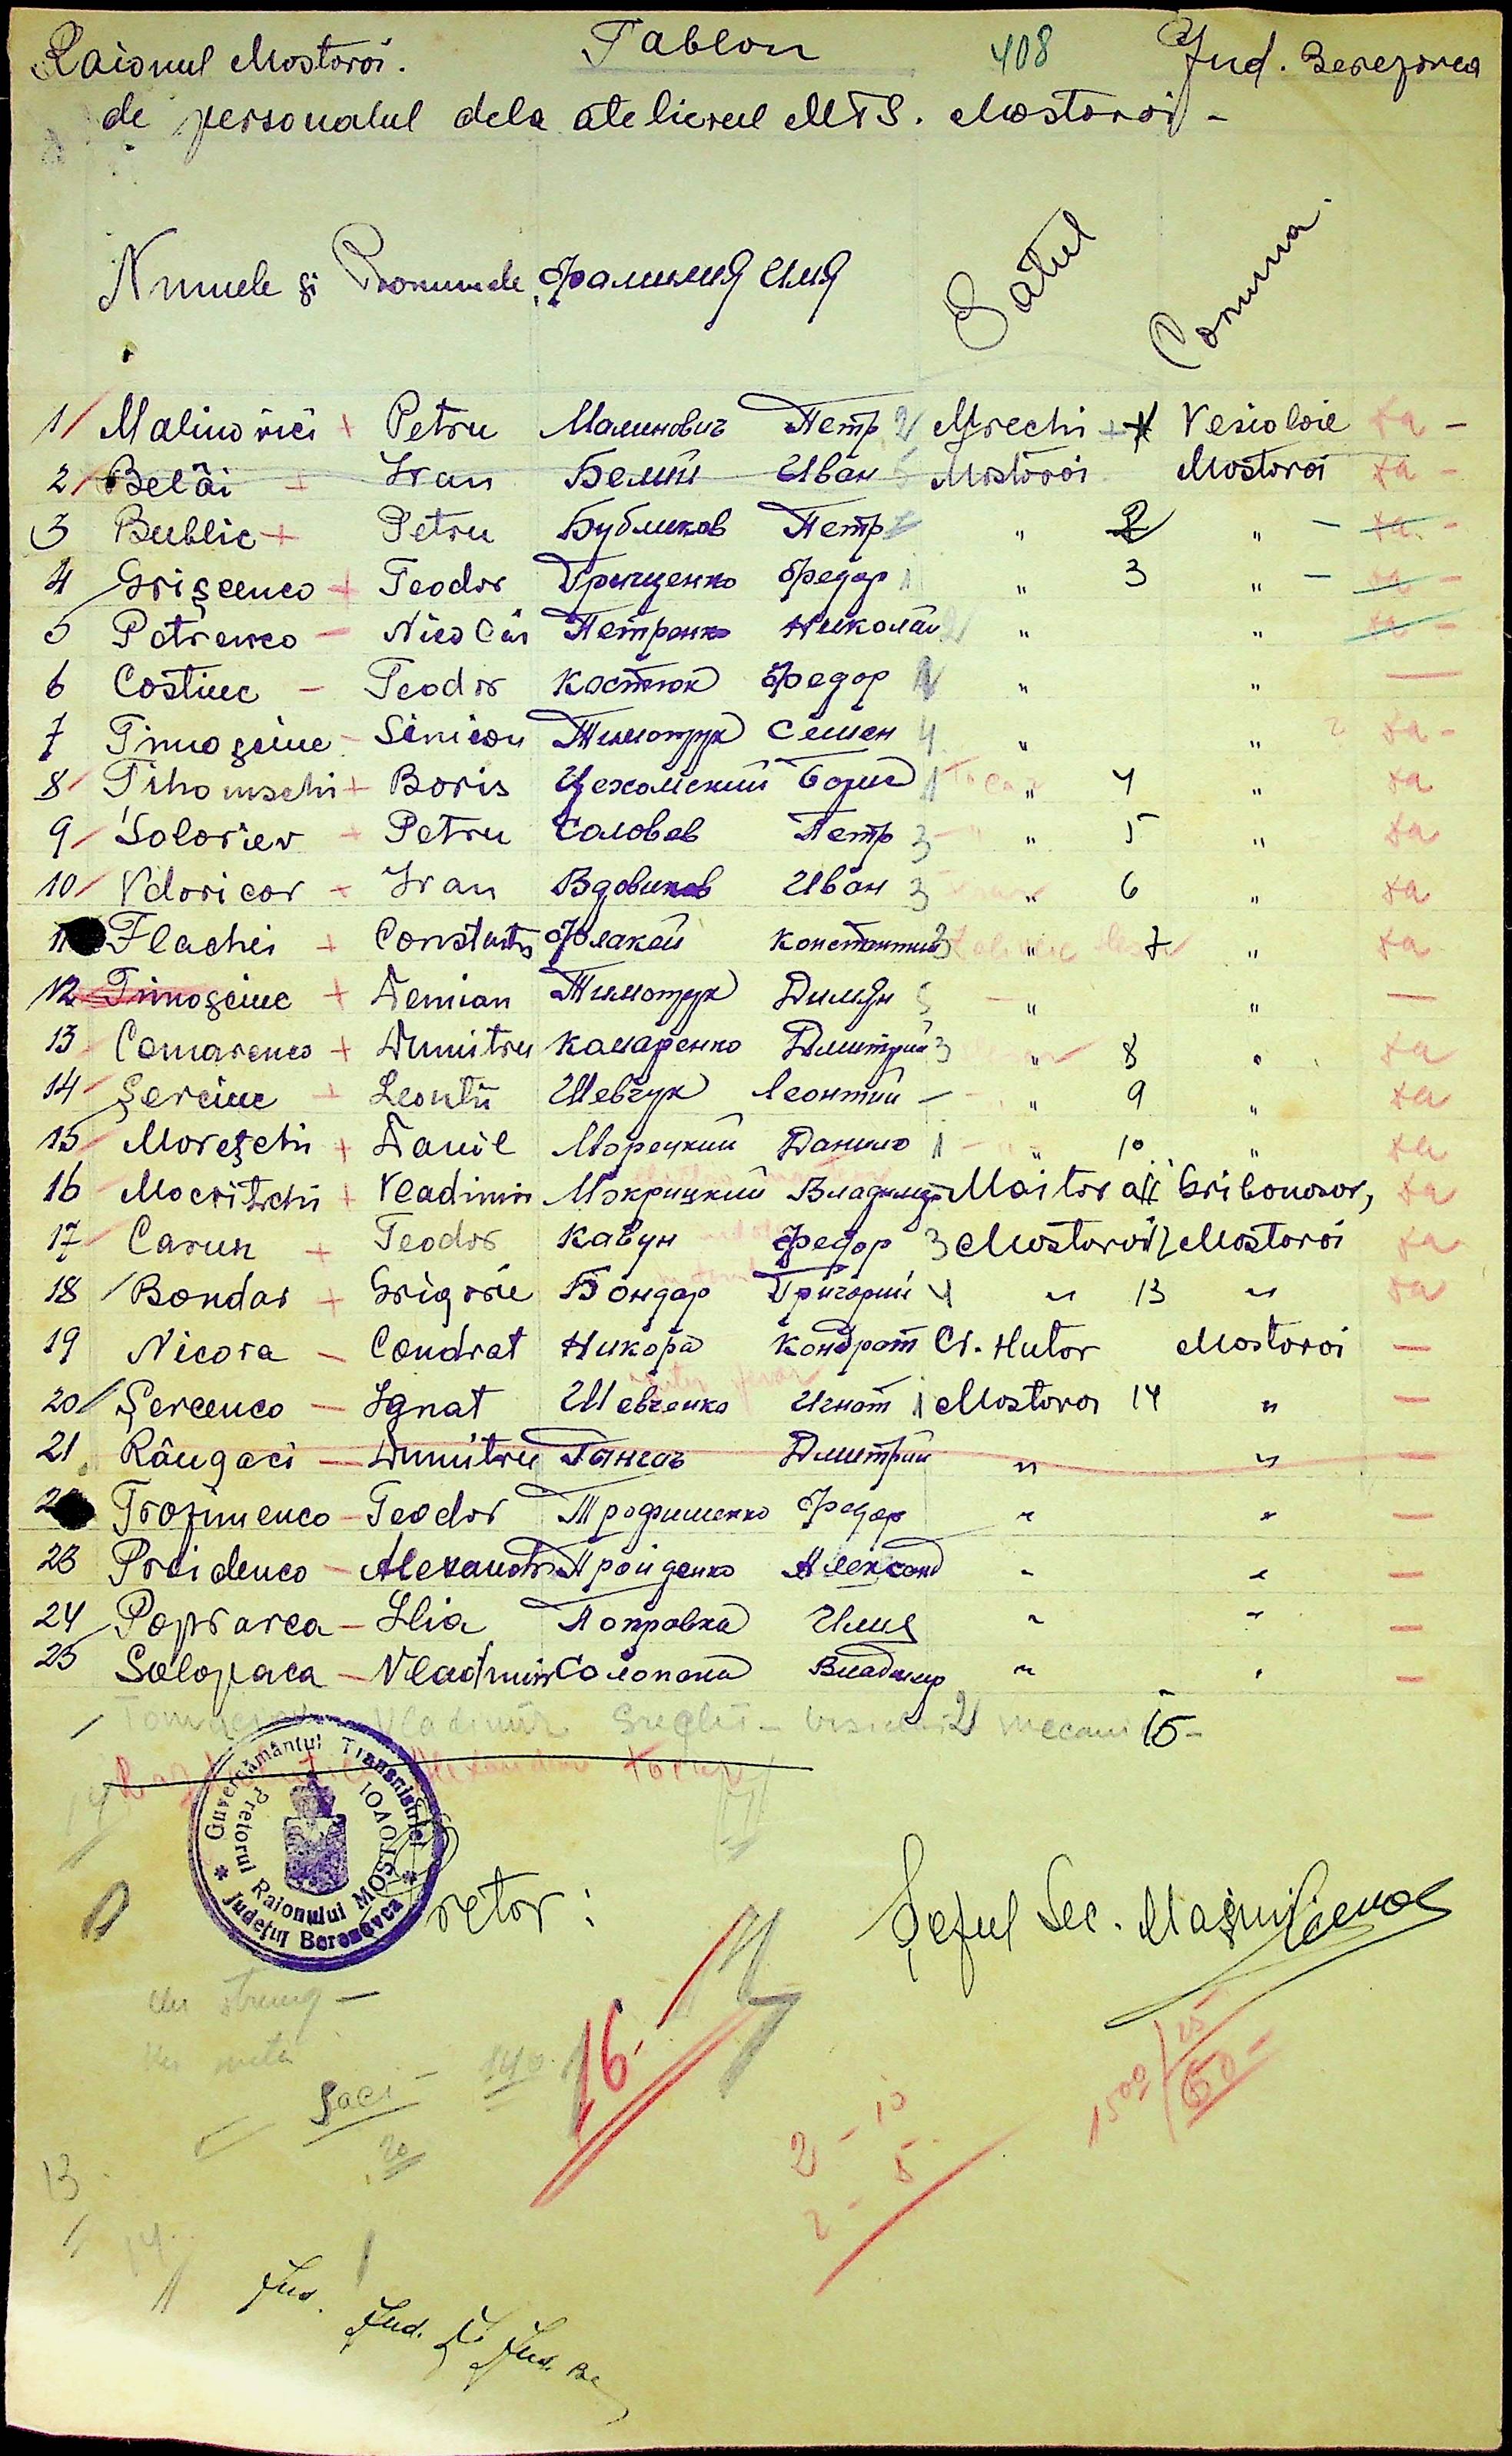 Raionul Mostovoi. Tablou 408 Jud. Berezovca
de personalul dela atelierul MTS. Mostovoi -
Numele și Pronumele Фамилия Имя Satul Comuna
1/ Malinovici + Petru Малинович Петр 2/ Mrechi + Vesioloie ta -
2/ Belâi + Ivan Белий Иван Mostovoi Mostovoi ta -
3 Bublic + Petru Бубликов Петр " 2 " - ta -
4 Grișcenco + Teodor Грищенко Федор 1 " 3 " - ta -
5 Petrenco - Nicolai Петренко Николай " " ta -
6 Costiuc - Teodor Костюк Федор " " —
7 Timoșciuc - Simion Тимощук Семен 4 " " ? ta -
8/ Tihomschi + Boris Цехомский Борис 1 " 4 " ta
9/ Soloviev + Petru Соловев Петр 3 - " 5 " ta
10/ Vdovicov + Ivan Вдовиков Иван 3 " 6 " ta
11 Flachei + Constantin Флакей Константин 3 " 7 " ta
12 Timoșciuc + Demian Тимощук Димян 5 - " " —
13 Comarenco + Dumitru Камаренко Димитрий 3 " 8 " ta
14 Șevciuc + Leontii Шевчук Леонтий - " 9 " ta
15 Morețchi + Danil Морецкий Данило 1 - " 10 " ta
16 Mocritchi + Vladimir Мокрицкий Владимир Maitova 11 Gribonosov, ta
17 Cavun + Teodor Кавун Федор 3 Mostovoi 12 Mostovoi ta
18 Bondar + Grigorie Бондар Григорий 4 " 13 " ta
19 Nicora - Condrat Никора Кондрат Cr. Hutor Mostovoi —
20/ Șevcenco - Ignat Шевченко Игнат 1 Mostovoi 14 " —
21 Rângaci - Dumitru Дмитрий " " —
Trofimenco - Teodor Трофименко Федор " " —
23 Proidenco - Alexandr Пройденко Александ " " —
24 Popravca - Ilia Поправка Илия " " —
25 Solopaca - Vladimir Солопака Владимир " " —
Vladimir 2/ mecani 15 -
Alexandru
Guvernământul Transnistriei
Pretorul Raionului MOSTOVOI
* Județul Berezovca *
Pretor: Șeful Sec. Mașini
Un strung -
17
16.
Saci - 140
20
1500 25
60 -
2 - 10
2 - 5
13
14
Jud.
Jud. Jud. Be